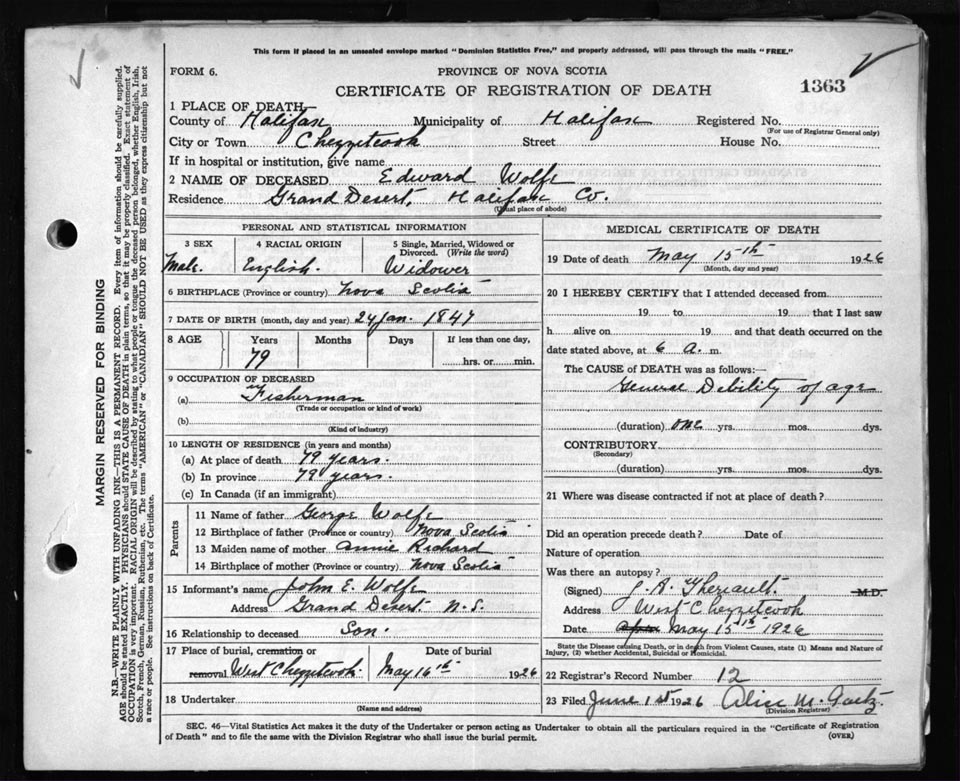 This form if placed in an unsealed envelope marked "Dominion Statistics Free," and properly addressed, will pass through the mails "FREE."
FORM 6.
PROVINCE OF NOVA SCOTIA
CERTIFICATE OF REGISTRATION OF DEATH
1363
1 PLACE OF DEATH
County of Halifax Municipality of Halifax Registered No.
(For use of Registrar General only)
City or Town Chezzetcook Street House No.
If in hospital or institution, give name
2 NAME OF DECEASED Edward Wolfe
Residence Grand Desert, Halifax Co.
(Usual place of abode)
PERSONAL AND STATISTICAL INFORMATION
3 SEX 4 RACIAL ORIGIN 5 Single, Married, Widowed or Divorced. (Write the word)
Male. English. Widower
6 BIRTHPLACE (Province or country) Nova Scotia
7 DATE OF BIRTH (month, day and year) 24 Jan. 1847
8 AGE Years Months Days If less than one day,
79 hrs. or min.
9 OCCUPATION OF DECEASED
(a) Fisherman
(Trade or occupation or kind of work)
(b)
(Kind of industry)
10 LENGTH OF RESIDENCE (in years and months)
(a) At place of death 79 years.
(b) In province 79 years.
(c) In Canada (if an immigrant)
Parents
11 Name of father George Wolfe
12 Birthplace of father (Province or country) Nova Scotia
13 Maiden name of mother Annie Richard
14 Birthplace of mother (Province or country) Nova Scotia
15 Informant's name John E. Wolfe
Address Grand Desert N.S.
16 Relationship to deceased Son.
17 Place of burial, cremation or removal Date of burial
West Chezzetcook May 16th 1926
18 Undertaker
(Name and address)
MEDICAL CERTIFICATE OF DEATH
19 Date of death May 15th 1926
(Month, day and year)
20 I HEREBY CERTIFY that I attended deceased from
19 to 19 that I last saw
h alive on 19 and that death occurred on
date stated above, at 6 a. m.
The CAUSE of DEATH was as follows:—
General Debility of age
(duration) one yrs. mos. dys.
CONTRIBUTORY
(Secondary)
(duration) yrs. mos. dys.
21 Where was disease contracted if not at place of death?
Did an operation precede death? Date of
Nature of operation
Was there an autopsy?
(Signed) J. A. Theriault. M.D.
Address West Chezzetcook
Date May 15th 1926
State the Disease causing Death, or in death from Violent Causes, state (1) Means and Nature of Injury, (2) whether Accidental, Suicidal or Homicidal.
22 Registrar's Record Number 12
23 Filed June 1st 1926 Alice M. Gaetz.
(Division Registrar)
SEC. 46—Vital Statistics Act makes it the duty of the Undertaker or person acting as Undertaker to obtain all the particulars required in the "Certificate of Registration
of Death" and to file the same with the Division Registrar who shall issue the burial permit.
(OVER)
MARGIN RESERVED FOR BINDING
N.B.—WRITE PLAINLY WITH UNFADING INK—THIS IS A PERMANENT RECORD. Every item of information should be carefully supplied.
AGE should be stated EXACTLY. PHYSICIANS should STATE CAUSE OF DEATH in plain terms, so that it may be properly classified. Exact statement of
OCCUPATION is very important. RACIAL ORIGIN will be described by stating to what people or tongue the deceased person belonged, whether English, Irish,
Scotch, French, German, Russian, Ruthenian, etc. The terms "AMERICAN" or "CANADIAN" SHOULD NOT BE USED as they express citizenship but not
a race or people. See instructions on back of Certificate.